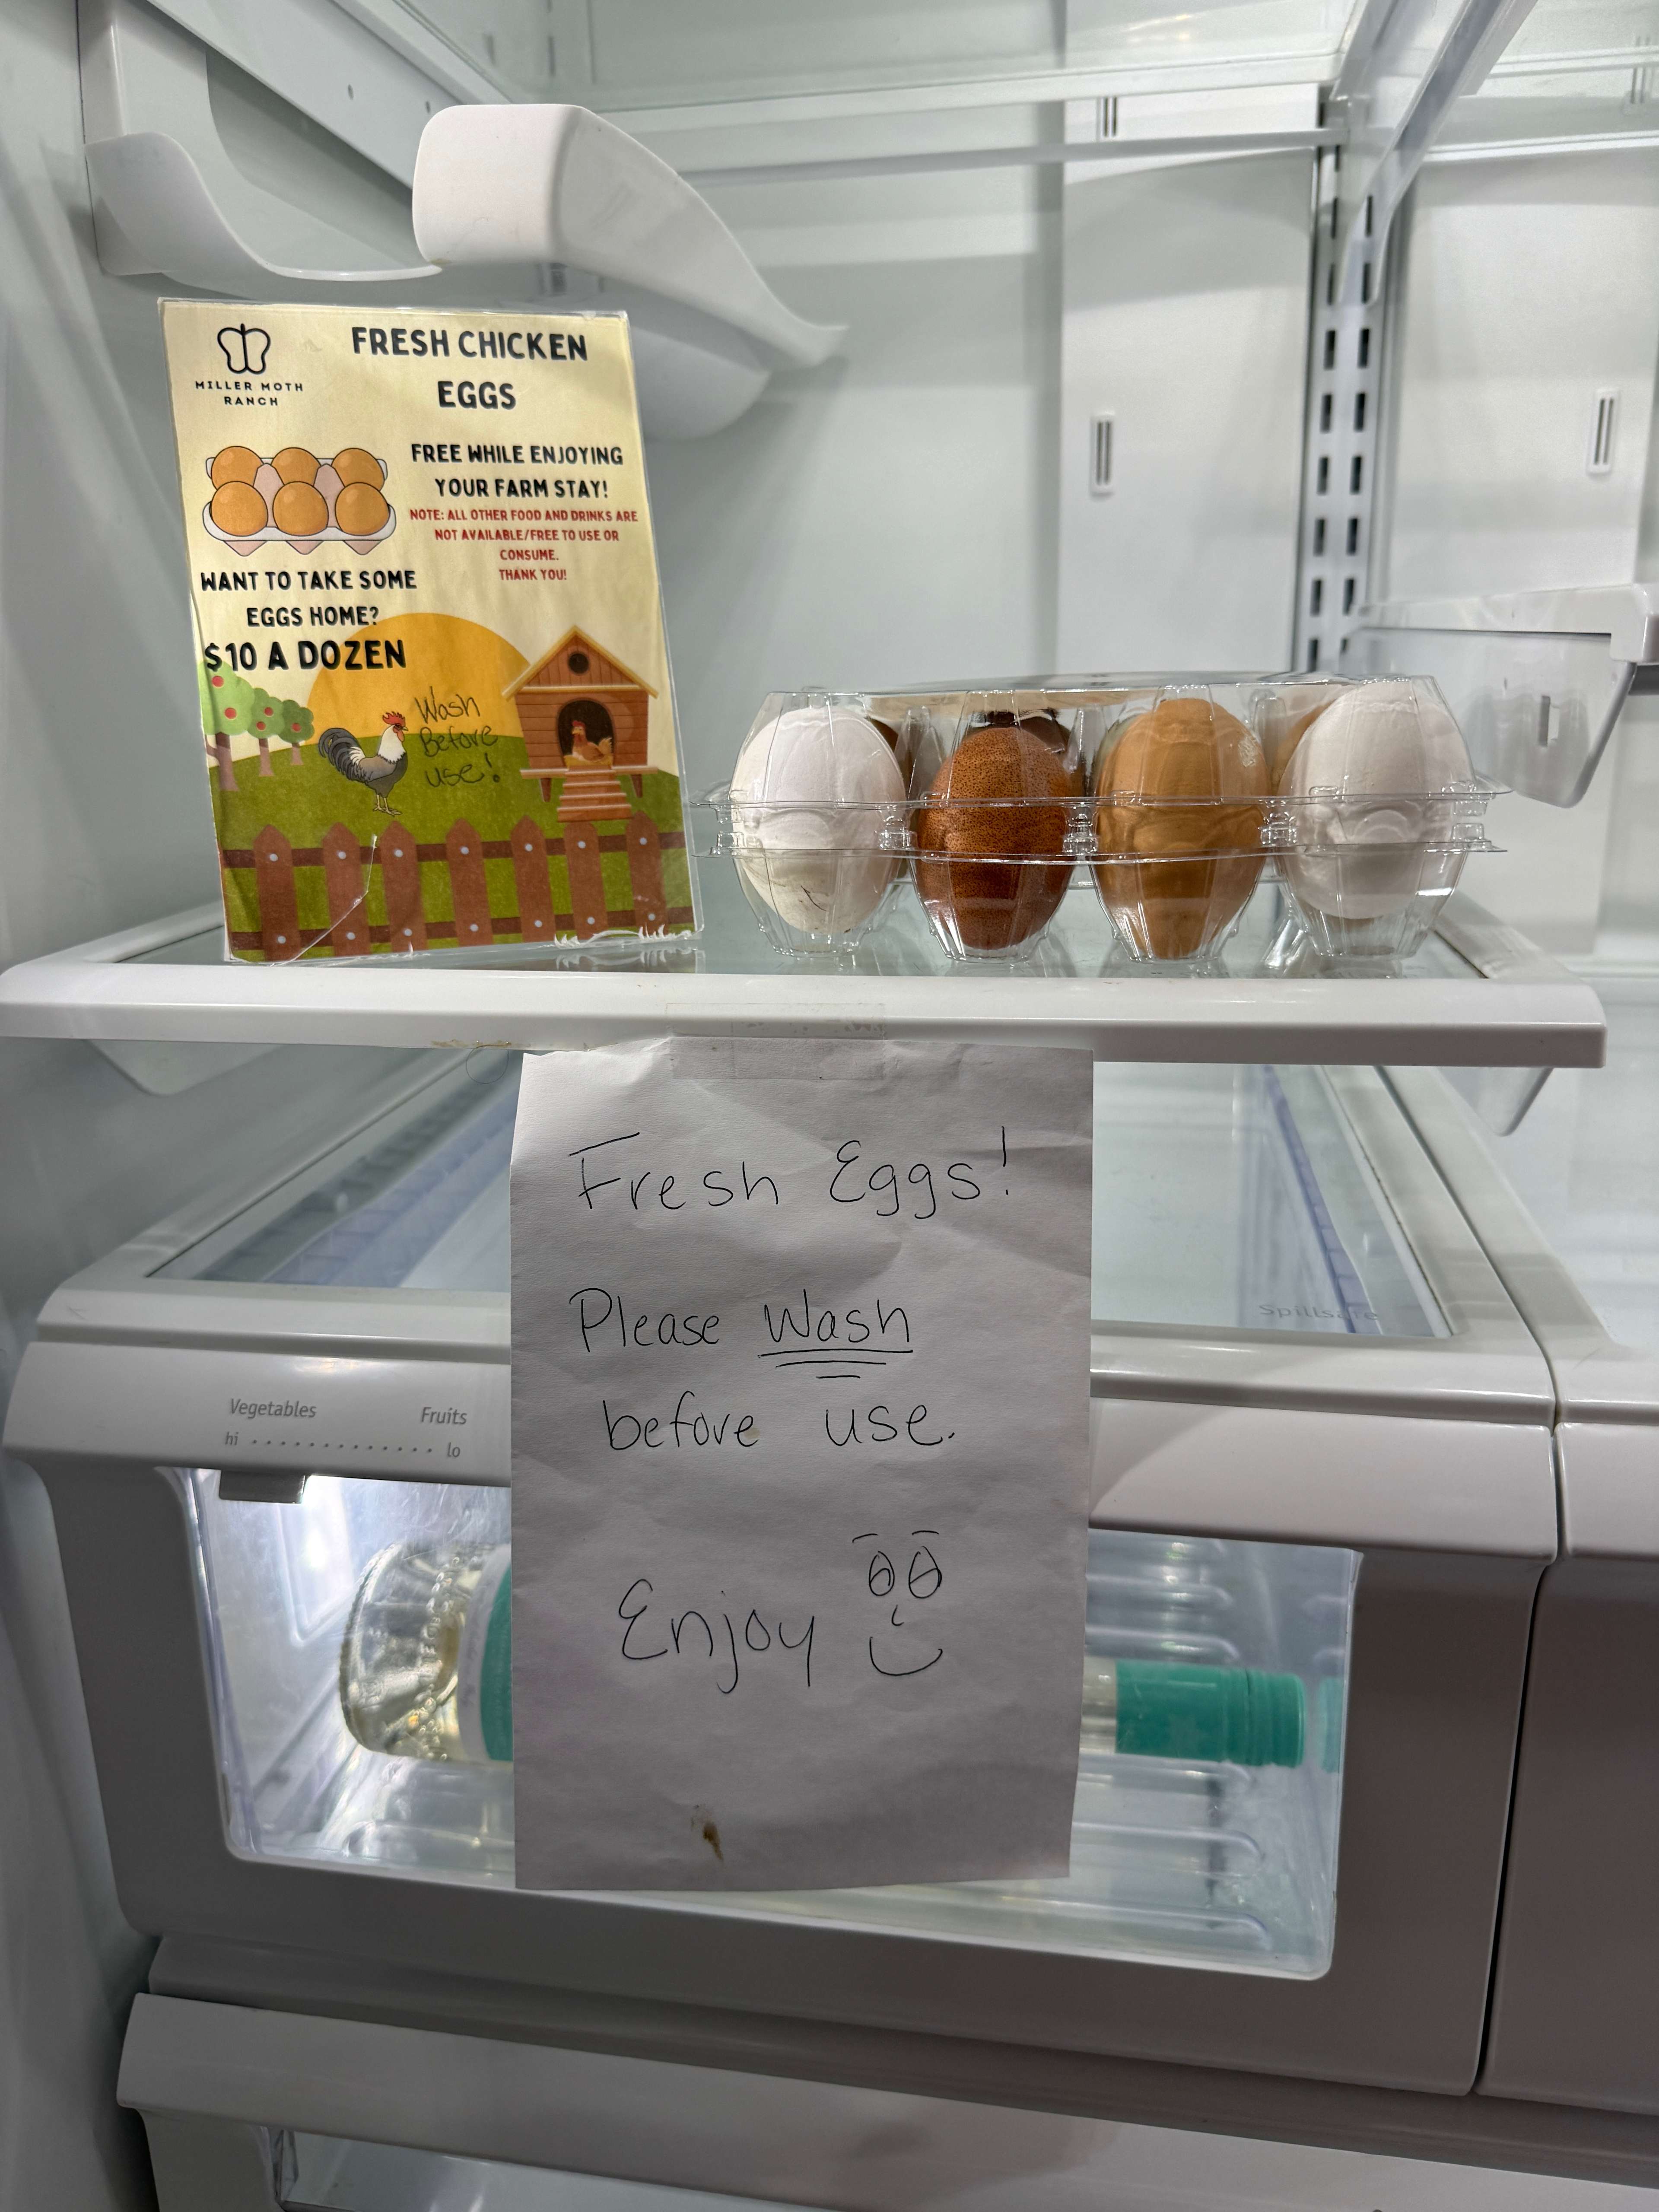 MILLER MOTH
RANCH
FRESH CHICKEN
EGGS
FREE WHILE ENJOYING
YOUR FARM STAY!
NOTE: ALL OTHER FOOD AND DRINKS ARE
NOT AVAILABLE/FREE TO USE OR
CONSUME.
THANK YOU!
WANT TO TAKE SOME
EGGS HOME?
$10 A DOZEN
Wash
Before
use!
Fresh Eggs!
Please Wash
before use.
Enjoy
Spillsafe
Vegetables Fruits
hi lo